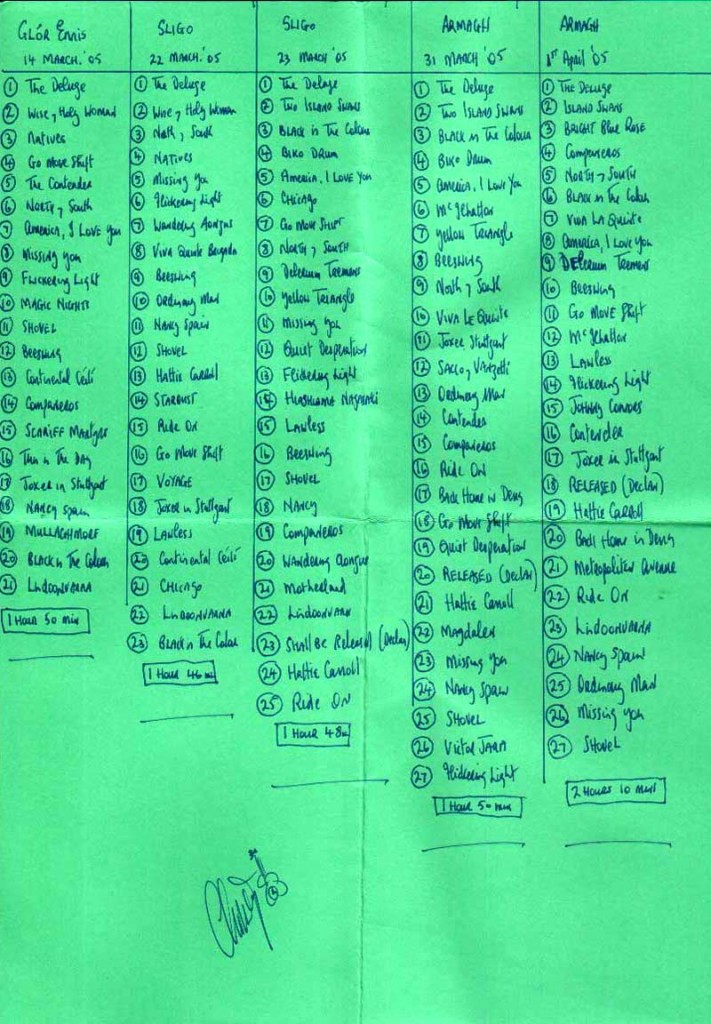 GLÓR ENNIS
14 MARCH. '05
① The Deluge
② Wise, Holy Woman
③ Natives
④ Go Move Shift
⑤ The Contender
⑥ North, South
⑦ America, I Love You
⑧ Missing You
⑨ Flickering Light
⑩ MAGIC NIGHTS
⑪ SHOVEL
⑫ Beeswing
⑬ Continental Ceílí
⑭ Companeros
⑮ SCARIFF Martyrs
⑯ This is The Day
⑰ Joxer in Stuttgart
⑱ Nancy Spain
⑲ MULLAGHMORE
⑳ BLACK is The Colour
㉑ Lisdoonvarna
1 Hour 50 min
SLIGO
22 MARCH. '05
① The Deluge
② Wise, Holy Woman
③ North, South
④ NATIVES
⑤ Missing You
⑥ Flickering Light
⑦ Wandering Aongus
⑧ Viva Quinte Brigada
⑨ Beeswing
⑩ Ordinary Man
⑪ Nancy Spain
⑫ SHOVEL
⑬ Hattie Carroll
⑭ STARDUST
⑮ Ride On
⑯ Go Move Shift
⑰ VOYAGE
⑱ Joxer in Stuttgart
⑲ LAWLESS
⑳ Continental Ceílí
㉑ CHICAGO
㉒ LISDOONVARNA
㉓ BLACK is The Colour
1 Hour 46 m
SLIGO
23 MARCH '05
① The Deluge
② Two ISLAND Swans
③ BLACK is The Colour
④ BIKO DRUM
⑤ America, I Love You
⑥ CHICAGO
⑦ Go Move SHIFT
⑧ NORTH, SOUTH
⑨ Delerium Tremens
⑩ Yellow TRIANGLE
⑪ Missing You
⑫ Quiet Desperation
⑬ Flickering Light
⑭ Hiroshima Nagasaki
⑮ LAWLESS
⑯ Beeswing
⑰ SHOVEL
⑱ NANCY
⑲ Companeros
⑳ WANDERING Aongus
㉑ Motherland
㉒ Lisdoonvarna
㉓ Shall Be Released (Declan)
㉔ Hattie Carroll
㉕ Ride On
1 Hour 48 m
ARMAGH
31 MARCH '05
① The Deluge
② Two ISLAND SWANS
③ BLACK is The Colour
④ Biko Drum
⑤ America, I Love You
⑥ McIlhatton
⑦ Yellow Triangle
⑧ BEESWING
⑨ North, South
⑩ VIVA LE Quinte
⑪ Joxer Stuttgart
⑫ SACCO, VANZETTI
⑬ Ordinary Man
⑭ Contender
⑮ Companeros
⑯ Ride On
⑰ Back Home in Derry
⑱ Go Move Shift
⑲ Quiet Desperation
⑳ RELEASED (Declan)
㉑ Hattie Carroll
㉒ Magdalen
㉓ Missing You
㉔ Nancy Spain
㉕ SHOVEL
㉖ Victor JARA
㉗ Flickering Light
1 Hour 50 min
ARMAGH
1st April '05
① THE Deluge
② ISLAND SWANS
③ BRIGHT Blue Rose
④ Companeros
⑤ NORTH, SOUTH
⑥ BLACK is The Colour
⑦ VIVA LA Quinte
⑧ America, I Love You
⑨ DELERIUM Tremens
⑩ BEESWING
⑪ Go MOVE Shift
⑫ McIlhatton
⑬ LAWLESS
⑭ Flickering Light
⑮ JOHNNY CONNORS
⑯ Contender
⑰ Joxer in Stuttgart
⑱ RELEASED (Declan)
⑲ Hattie Carroll
⑳ Back Home in Derry
㉑ Metropolitan Avenue
㉒ Ride On
㉓ LISDOONVARNA
㉔ NANCY SPAIN
㉕ Ordinary Man
㉖ Missing You
㉗ SHOVEL
2 HOURS 10 mins